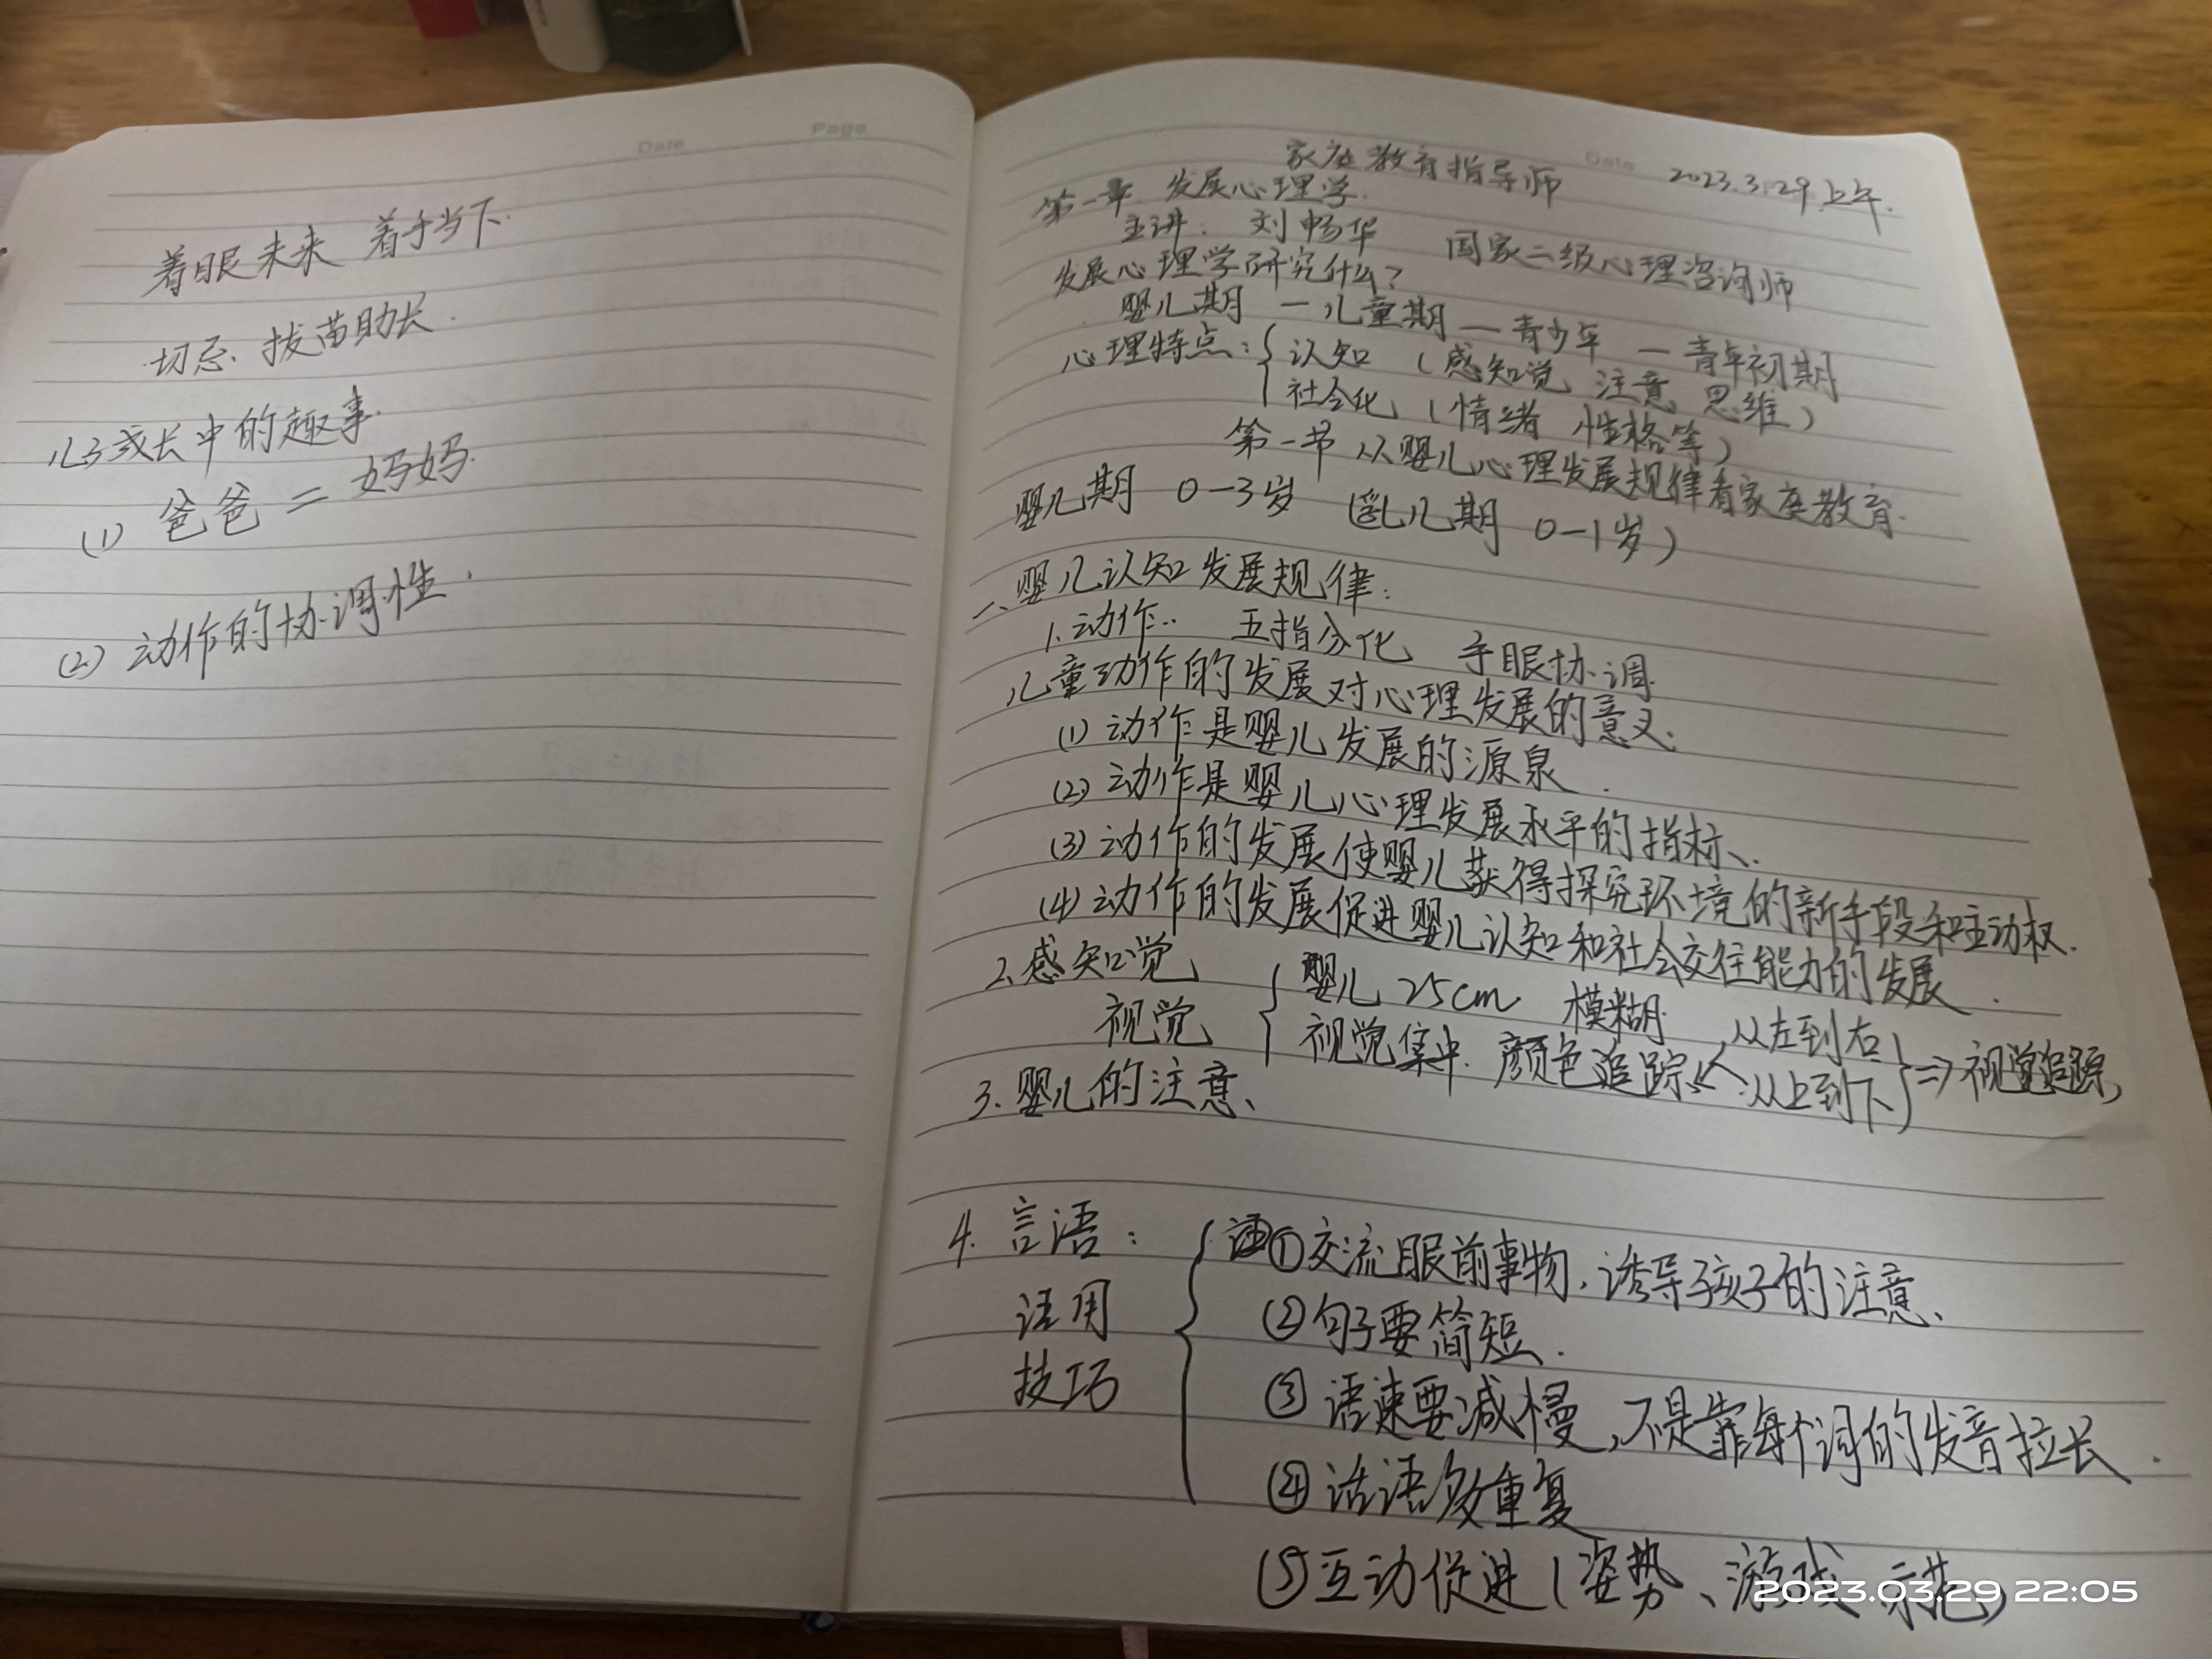 Date
Page
着眼未来 着手当下.
切忌. 拔苗助长.
儿子成长中的趣事.
(1) 爸爸 = 妈妈.
(2) 动作的协调性.
家庭教育指导师
Date 2023.3.29上午.
第一章 发展心理学.
主讲: 刘畅华 国家二级心理咨询师
发展心理学研究什么?
婴儿期 — 儿童期 — 青少年 — 青年初期
心理特点: { 认知 (感知觉 注意 思维)
社会化 (情绪 性格等)
第一节 从婴儿心理发展规律看家庭教育.
婴儿期 0-3岁 (乳儿期 0-1岁)
一、婴儿认知发展规律:
1. 动作.. 五指分化 手眼协调
儿童动作的发展对心理发展的意义.
(1) 动作是婴儿发展的源泉.
(2) 动作是婴儿心理发展水平的指标、.
(3) 动作的发展使婴儿获得探究环境的新手段和主动权.
(4) 动作的发展促进婴儿认知和社会交往能力的发展.
2、感知觉
视觉 { 婴儿 25cm 模糊
视觉集中. 颜色追踪 从左到右 从上到下 } ⇒ 视觉追踪,
3. 婴儿的注意、
4. 言语:
语用
技巧
① 交流眼前事物, 诱导孩子的注意、
② 句子要简短.
③ 语速要减慢, 不是靠每个词的发音拉长.
④ 话语多重复
⑤ 互动促进 (姿势、游戏 示范)
2023.03.29 22:05